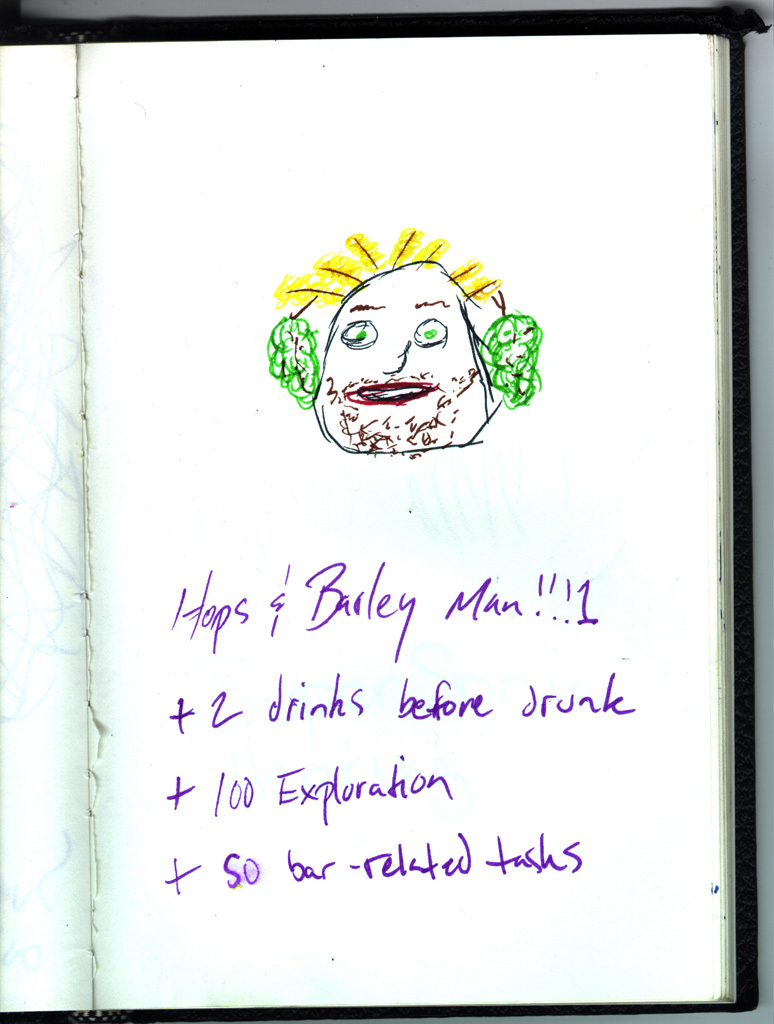 Hops & Barley Man!!!1
+ 2 drinks before drunk
+ 100 Exploration
+ 50 bar-related tasks